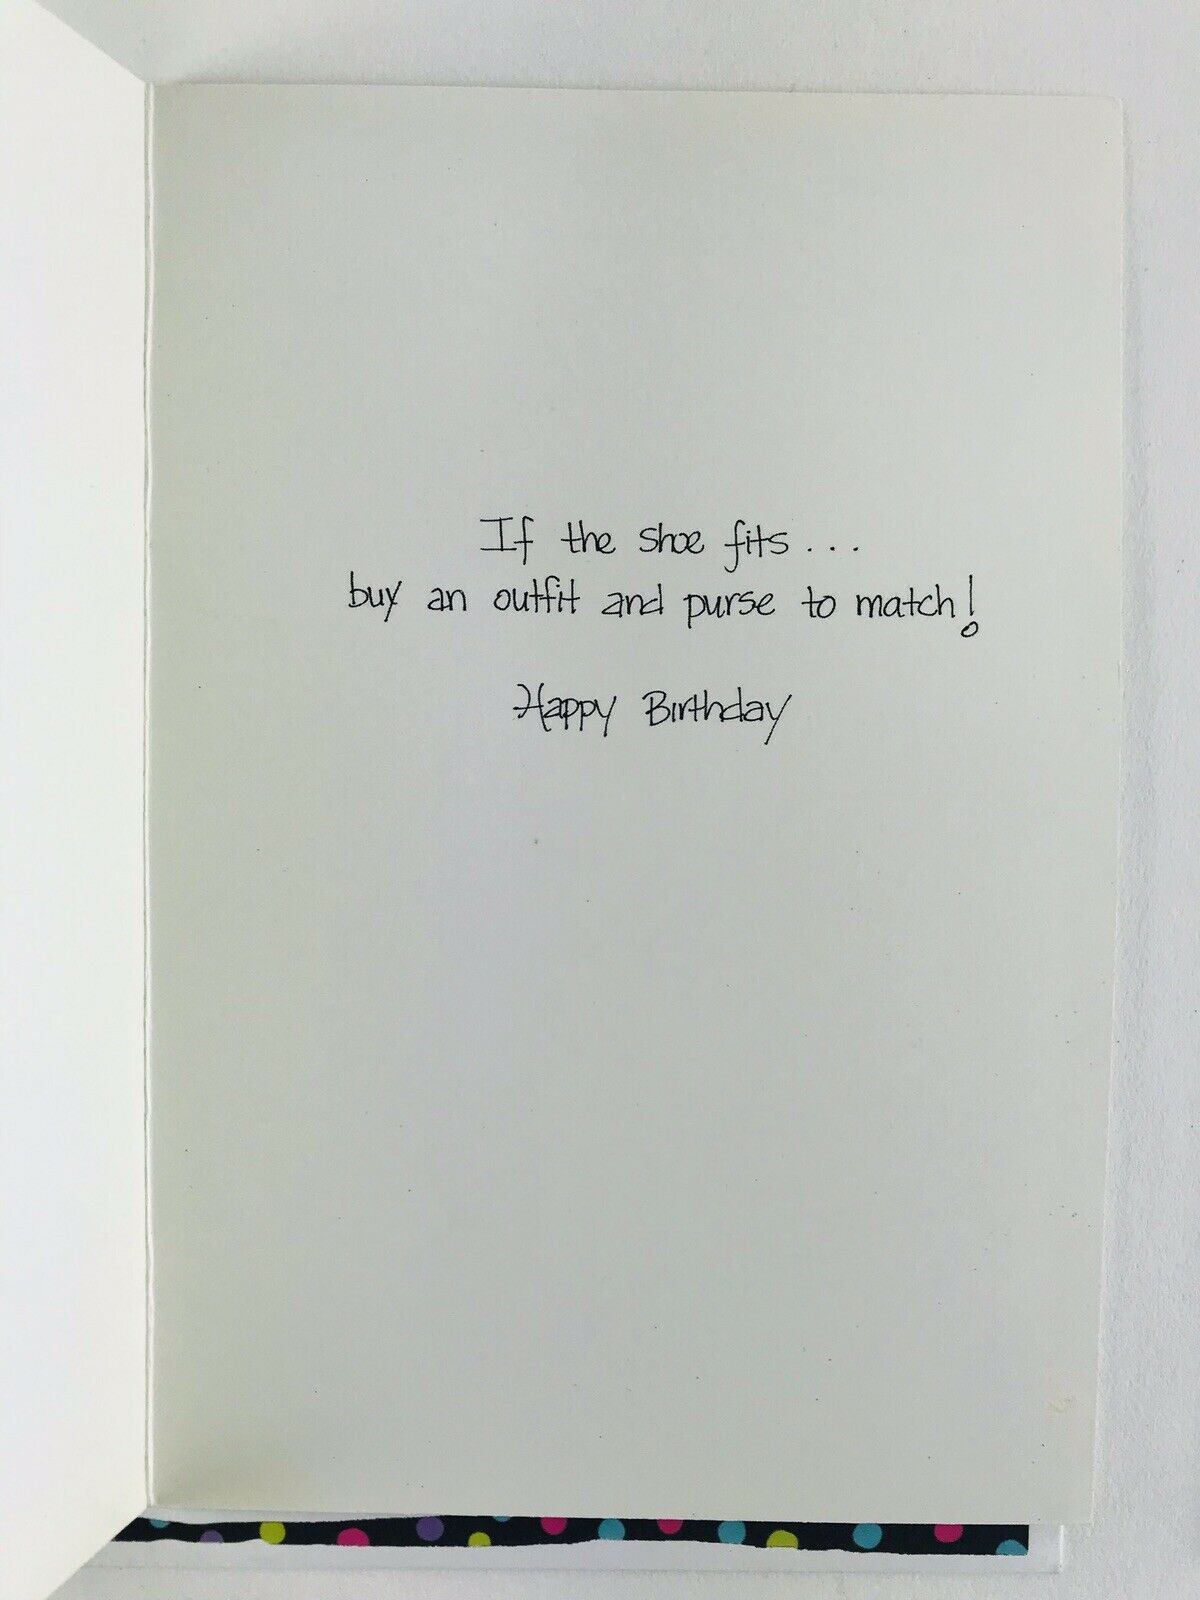 If the shoe fits...
buy an outfit and purse to match!
Happy Birthday